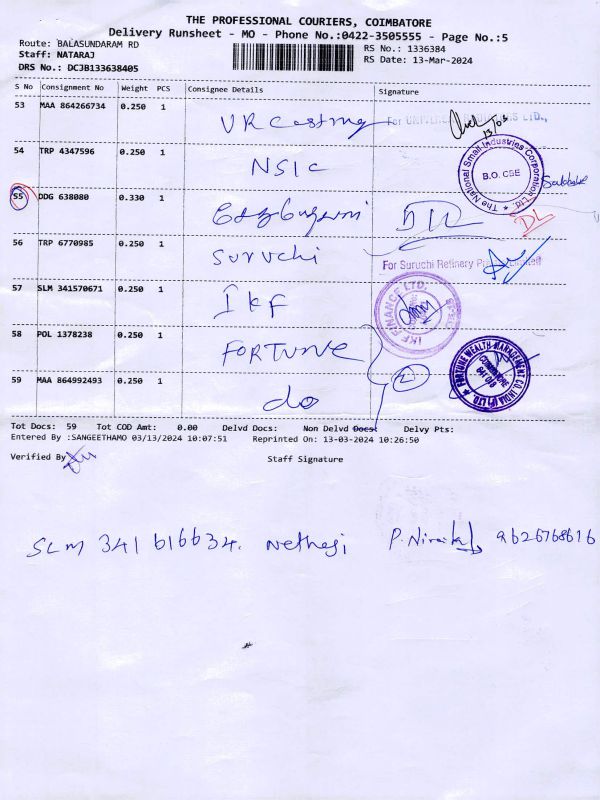 THE PROFESSIONAL COURIERS, COIMBATORE
Delivery Runsheet - MO - Phone No.:0422-3505555 - Page No.:5
Route: BALASUNDARAM RD
RS No.: 1336384
Staff: NATARAJ
RS Date: 13-Mar-2024
DRS No.: DCJB133638405
S No Consignment No Weight PCS Consignee Details Signature
53 MAA 864266734 0.250 1
VR casting
13/03
54 TRP 4347596 0.250 1
NSIC
The National Small Industries Corporation Ltd.
B.O. CBE
55 DDG 638080 0.330 1
DL
56 TRP 6770985 0.250 1
Suruchi
For Suruchi Refinery Private Limited
57 SLM 341570671 0.250 1
IKF
IKF FINANCE LTD.
58 POL 1378238 0.250 1
FORTUNE
FORTUNE WEALTH MANAGEMENT CO. INDIA (P) LTD.
COIMBATORE
641 018
59 MAA 864992493 0.250 1
do
2
Tot Docs: 59 Tot COD Amt: 0.00 Delvd Docs: Non Delvd Docs: Delvy Pts:
Entered By :SANGEETHAMO 03/13/2024 10:07:51 Reprinted On: 13-03-2024 10:26:50
Verified By
Staff Signature
SLM 341616634. Nethaji P. 9626768616